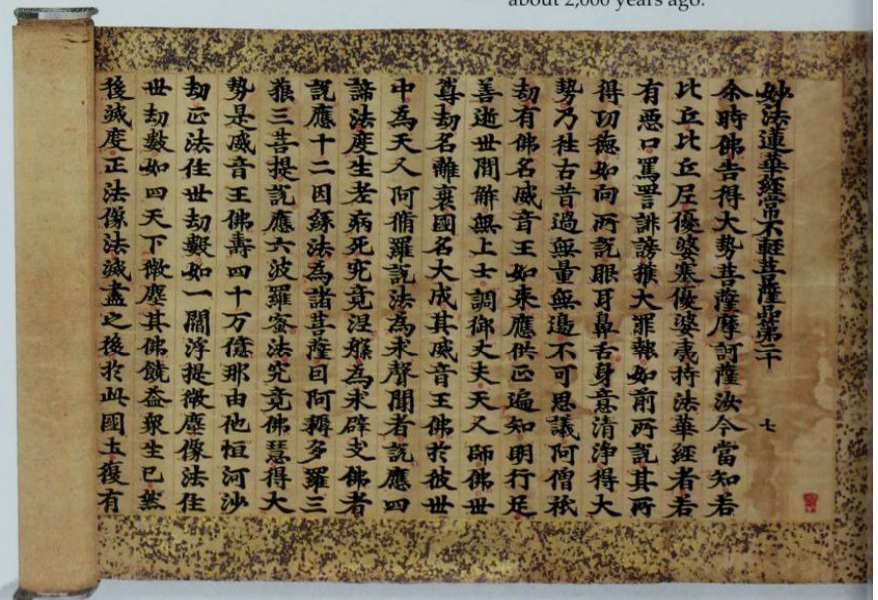 about 2,000 years ago.
妙法蓮華經常不輕菩薩品第二十 七
尒時佛告得大勢菩薩摩訶薩汝今當知若
比丘比丘尼優婆塞優婆夷持法華經者若
有惡口罵詈誹謗獲大罪報如前所說其所
得功德如向所說眼耳鼻舌身意清淨得大
勢乃往古昔過無量無邊不可思議阿僧祇
劫有佛名威音王如来應供正遍知明行足
善逝世間解無上士調御丈夫天人師佛世
尊劫名離衰國名大成其威音王佛於彼世
中為天人阿脩羅說法為求聲聞者說應四
諦法度生老病死究竟涅槃為求辟支佛者
說應十二因緣法為諸菩薩因阿耨多羅三
藐三菩提說應六波羅蜜法究竟佛慧得大
勢是威音王佛壽四十万億那由他恒河沙
劫正法住世劫數如一閻浮提微塵像法住
世劫數如四天下微塵其佛饒益衆生已然
後滅度正法像法滅盡之後於此國土復有